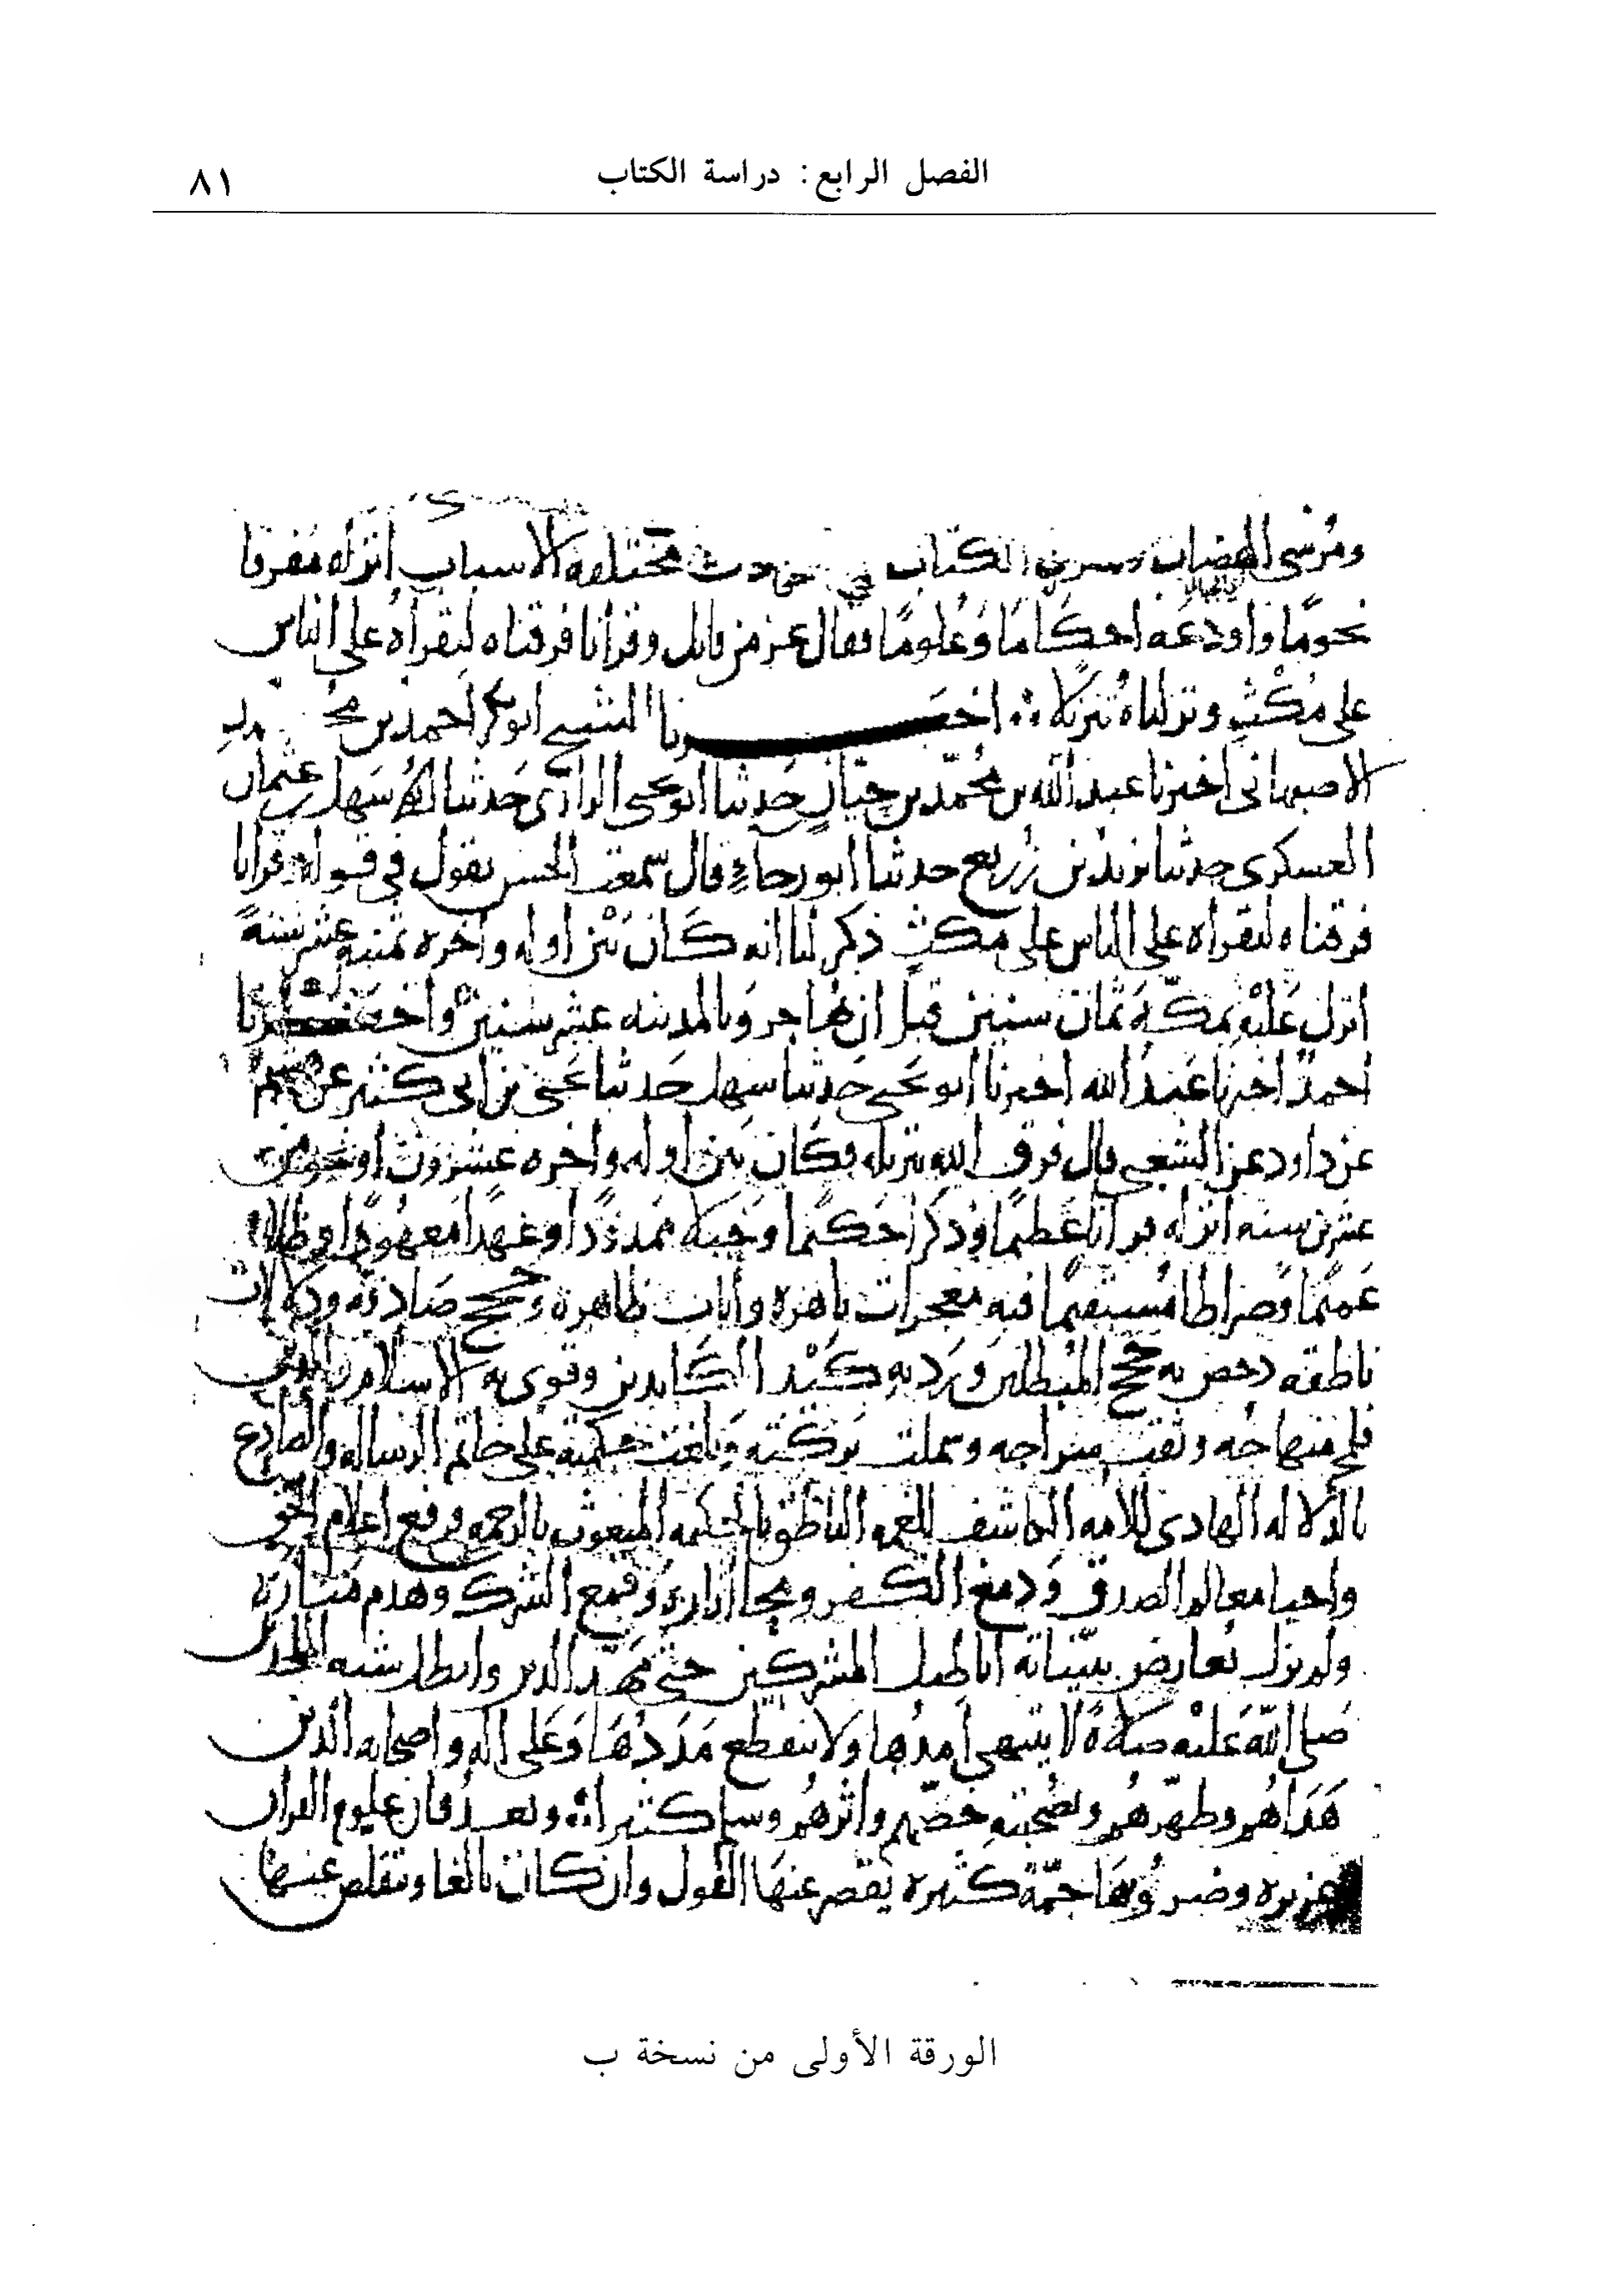 الفصل الرابع: دراسة الكتاب ٨١
ومرسى الهضاب الكتاب في حوادث مختلفة الاسباب انزله مفرقا
نجومًا واودعه احكامًا وعُلومًا فقال عز من قايل وقرانا فرقناه لتقراه على الناس
على مُكْثٍ ونزلناه تنزيلا ∴ اخبـــرنا الشيخ ابو بكر احمد بن محمد
الاصبهاني اخبرنا عبد الله بن محمّد بن حيّان حدثنا ابو يحيى الرازي حدثنا سهل بن عثمان
العسكري حدثنا يزيد بن زريع حدثنا ابو رجاء قال سمعت الحسن يقول في قوله وقرانا
فرقناه لتقراه على الناس على مكثٍ ذكر لنا انه كان بين اوله واخره ثمنيه عشر سنةً
انزل عليْهِ بمكّة ثمان سنين قبل ان يهاجر وبالمدينه عشر سنين واخبرنا
احمد اخبرنا عبد الله اخبرنا ابو يحيى حدثنا سهل حدثنا يحيى بن ابي كثير عن هشيم
عن داود عن الشعبي قال فرق الله تنزيله فكان بين اوله واخره عشرون او نحو من
عشرين سنه انزله قرآنًا عظيمًا وذكرًا حكيمًا وحبلا ممدودًا وعهدًا معهودًا وظلا
عميمًا وصراطا مستقيمًا فيه معجزات باهرة وآيات ظاهرة وحجج صادقه ودلالات
ناطقه دحض به حجج المبطلين ورد به كيْد الكايدين وقوى به الاسلام والدين
فلج منهاجه وثقب سراجه وشملت بركته وبلغت حكمته على خاتم الرساله والصادع
بالدلاله الهادي للامه الكاشف للغمه الناطق بالحكمه المبعوث بالرحمه فرفع اعلام الحق
واحيا معالم الصدق ودمغ الكفر ومحا اثاره وقمع الشرك وهدم مناره
ولم يزل يعارض ببيّناته اباطيل المشركين حتى مهّد الدين وابطل شبه الملحدين
صلى الله عليْه صلاةً لا ينتهي امدها ولا ينقطع مددها وعلى اله واصحابه الذين
هداهم وطهّرهم وبصُحبته خصّهم واثرهم وسلم كثيرا ∴ وبعد فان علوم القران
غزيره وضروبها جمّة كثيره يقصر عنها القول وان كان بالغا ويتقلص عنها
الورقة الأولى من نسخة ب